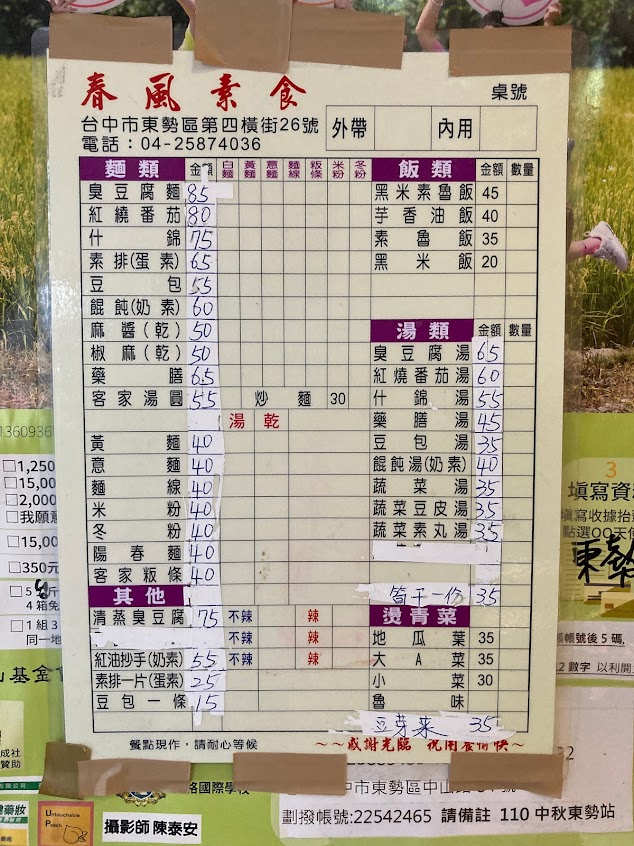 春風素食
桌號
台中市東勢區第四橫街26號
電話：04-25874036
外帶 內用
麵類 金額 白麵 黃麵 薏麵 麵線 粄條 米粉 冬粉
臭豆腐麵 85
紅燒番茄 80
什錦 75
素排(蛋素) 65
豆包 55
餛飩(奶素) 60
麻醬(乾) 50
椒麻(乾) 50
藥膳 65
客家湯圓 55 炒麵 30
湯 乾
黃麵 40
薏麵 40
麵線 40
米粉 40
冬粉 40
陽春麵 40
客家粄條 40
其他
清蒸臭豆腐 75 不辣 辣
不辣 辣
紅油抄手(奶素) 55 不辣 辣
素排一片(蛋素) 25
豆包一條 15
飯類 金額 數量
黑米素魯飯 45
芋香油飯 40
素魯飯 35
黑米飯 20
湯類 金額 數量
臭豆腐湯 65
紅燒番茄湯 60
什錦湯 55
藥膳湯 45
豆包湯 35
餛飩湯(奶素) 40
蔬菜湯 35
蔬菜豆皮湯 35
蔬菜素丸湯 35
筍干一份 35
燙青菜
地瓜葉 35
大A菜 35
小菜 30
魯味
豆芽菜 35
餐點現作，請耐心等候
～～感謝光臨 祝用餐愉快～
1360936
1,250
15,000
2,000
我願意
15,000
350元
4箱免
1組3
同一地
基金會
成社
贊助
健藥妝
Untouchable
攝影師 陳泰安
洛國際學校
3
填寫資料
填寫收據抬
點選QQ天
東勢
帳帳號後5碼,
12數字 以利開
中市東勢區中山路
劃撥帳號:22542465 請備註 110中秋東勢站